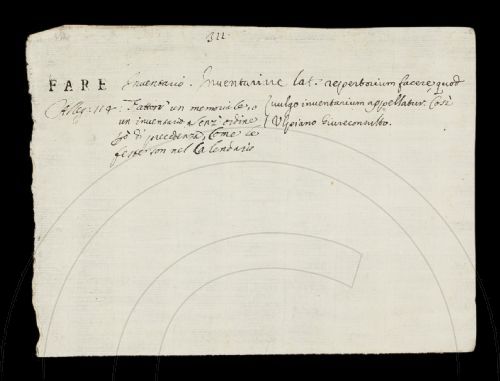 311.
FARE Inventario. Inventariare lat. repertorium facere, quod
Alleg. 114. Fattovi un memoriale, o vulgo inventarium appellatur, Così
un inventario senz' ordine Vlpiano Giureconsulto.
di precedenza, come le
feste son nel Calendario